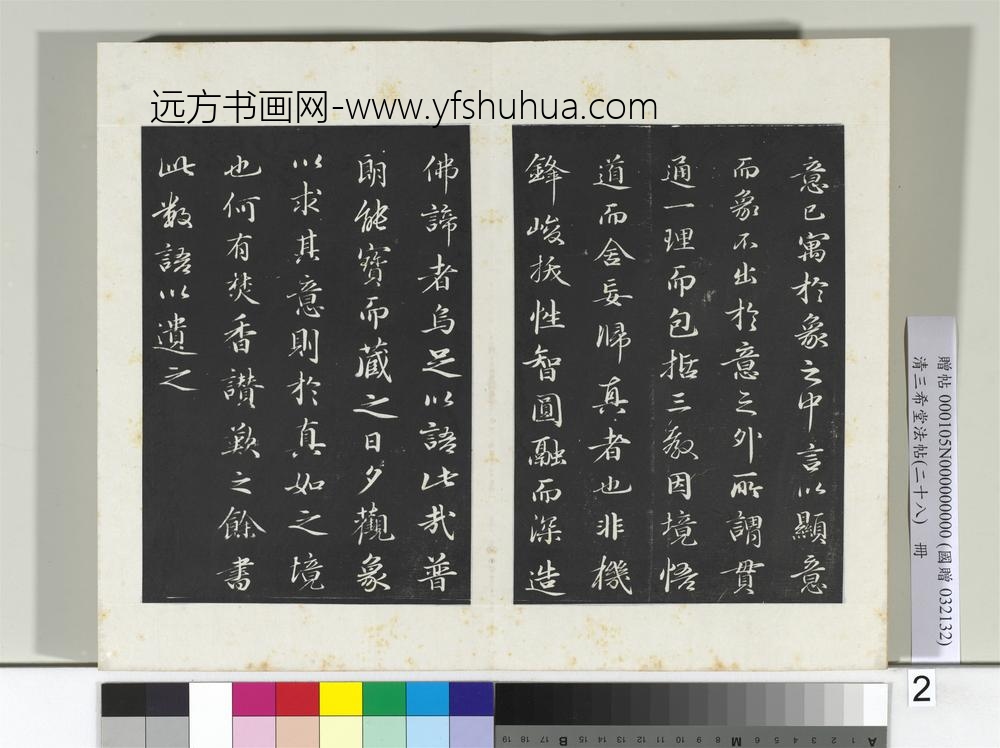 远方书画网-www.yfshuhua.com
意已寓於象之中言以顯意
而象不出於意之外所謂貫
通一理而包括三教因境悟
道而舍妄歸真者也非機
鋒峻拔性智圓融而深造
佛諦者烏足以語此哉普
朗能寶而藏之日夕觀象
以求其意則於真如之境
也何有焚香讃歎之餘書
此數語以遺之
贈帖 000105N000000000 (國贈 032132)
清三希堂法帖(二十八) 冊
2
A 1 2 3 4 5 6 M 8 9 10 11 12 13 14 15 B 17 18 19